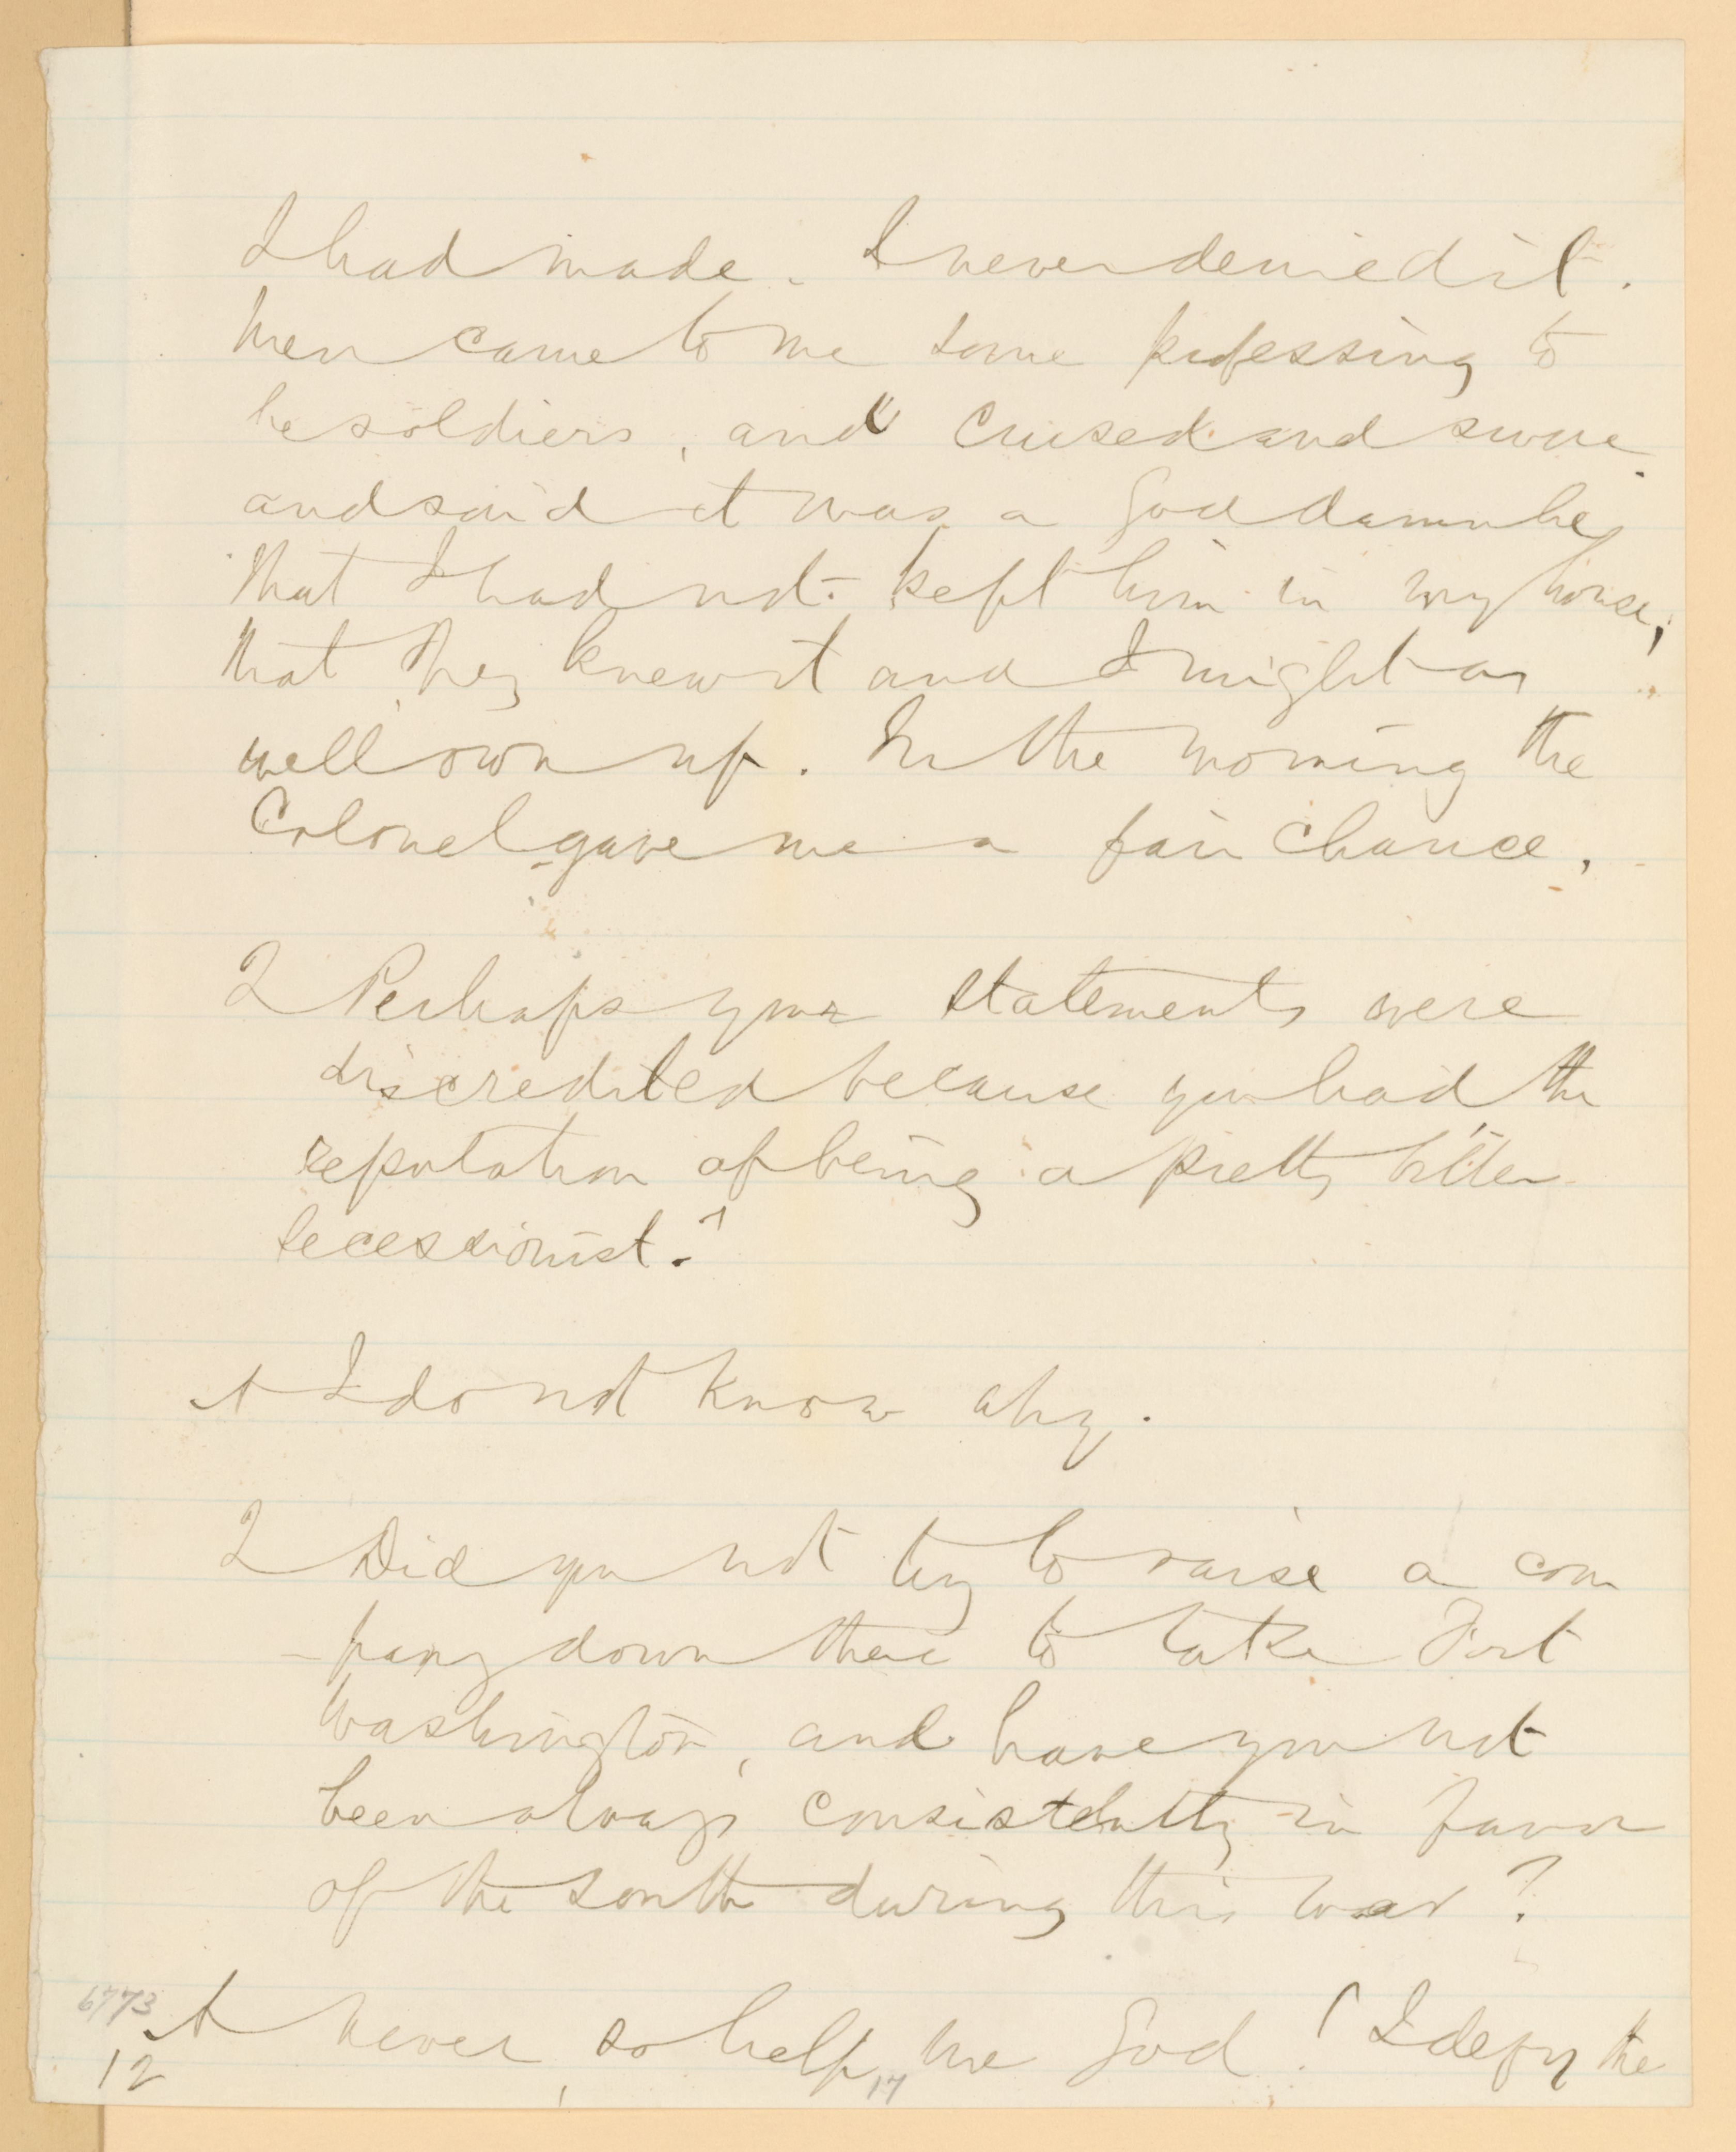 I had made. I never denied it.
Men came to me some professing to
be soldiers, and cursed and swore
and said it was a God damn lie
that I had not kept him in my house,
that they knew it and I might as
well own up. In the morning the
Colonel gave me a fair chance.
Q Perhaps your statements were
discredited because you had the
reputation of being a pretty bitter
secessionist?
A I do not know why.
Q Did you not try to raise a com
-pany down there to take Fort
Washington, and have you not
been always consistently in favor
of the south during this war?
A Never, so help me God! I defy the
6773
12
17